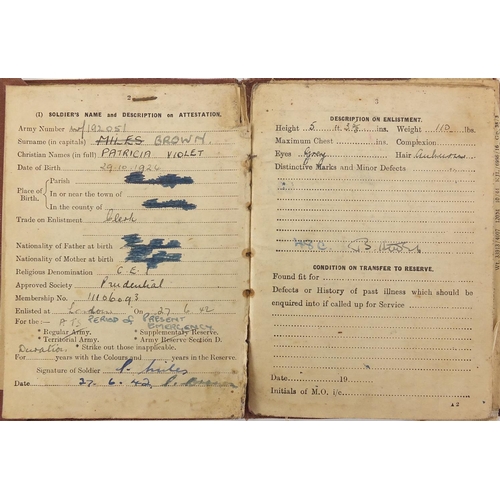 2
(I) SOLDIER'S NAME and DESCRIPTION on ATTESTATION.
Army Number
Surname (in capitals) MILES BROWN.
Christian Names (in full) PATRICIA VIOLET
Date of Birth 29.10.1924
Place of Birth.
Parish
In or near the town of
In the county of
Trade on Enlistment Clerk
Nationality of Father at birth
Nationality of Mother at birth
Religious Denomination C.E.
Approved Society Prudential
Membership No. 11106093
Enlisted at London On 27.6.42
For the:— A.T.S. PERIOD OF PRESENT EMERGENCY
* Regular Army. * Supplementary Reserve.
* Territorial Army. * Army Reserve Section D.
Duration * Strike out those inapplicable.
For years with the Colours and years in the Reserve.
Signature of Soldier P. Miles
Date 27.6.42 P. Brown
3
DESCRIPTION ON ENLISTMENT.
Height 5 ft. ins. Weight 110 lbs.
Maximum Chest ins. Complexion
Eyes Grey Hair Auburn
Distinctive Marks and Minor Defects
CONDITION ON TRANSFER TO RESERVE.
Found fit for
Defects or History of past illness which should be
enquired into if called up for Service
Date 19
Initials of M.O. i/c
A 2